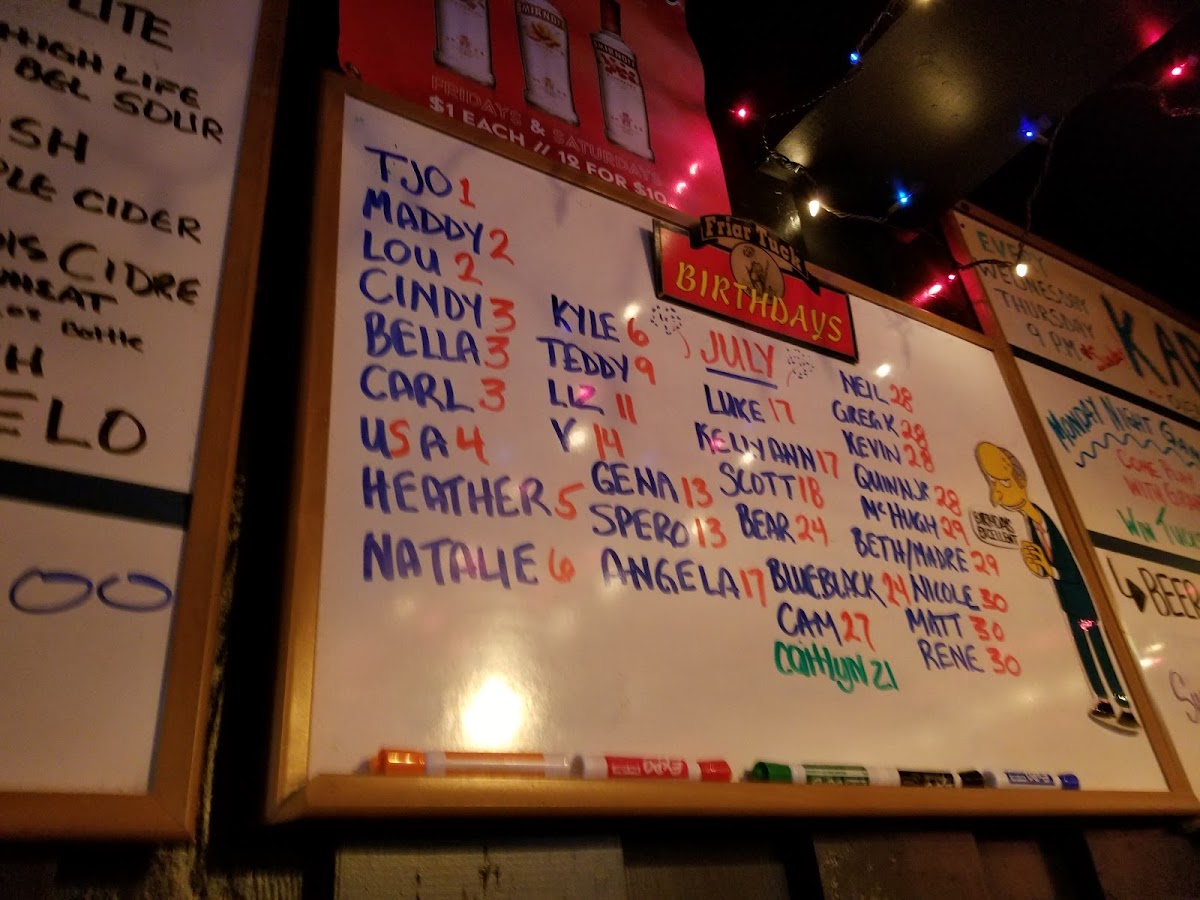 LITE
HIGH LIFE
BGL SOUR
CIDER
CIDRE
Bottle
SMIRNOFF
FRIDAYS & SATURDAYS
$1 EACH // 12 FOR $10
Friar Tuck
BIRTHDAYS
JULY
TJO 1
MADDY 2
LOU 2
CINDY 3
BELLA 3
CARL 3
USA 4
HEATHER 5
NATALIE 6
KYLE 6
TEDDY 9
LIZ 11
V 14
GENA 13
SPERO 13
ANGELA 17
LUKE 17
KELLY ANN 17
SCOTT 18
BEAR 24
BLUEBLACK 24
CAM 27
Caitlyn 21
NEIL 28
GREG K 28
KEVIN 28
QUINN JR 28
McHUGH 29
BETH/MADRE 29
NICOLE 30
MATT 30
RENE 30
BIRTHDAYS
EXCELLENT
EXPO
EVERY
WEDNESDAY
THURSDAY
9 PM
KAR
MONDAY NIGHT
COME
WITH
WIN
BEER